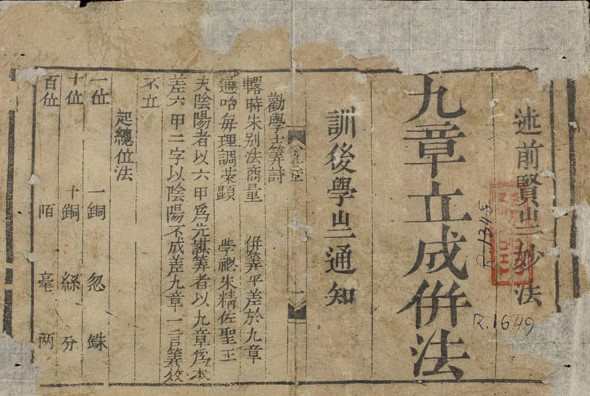 述前賢㞢妙法
R.1345
R.1649
九章立成併法
訓後學㞢通知
九章 一
勸學士筭詩
時朱别法商量 併筭平差於九章
每理調荣顯 學祕朱精佐聖王
夫陰陽者以六甲爲先謀筭者以九章爲本
差六甲二字以陰陽不成差九章一言筭
不立
起總位法
一位 一銅 忽 銖
十位 十銅 絲 分
百位 陌 毫 兩